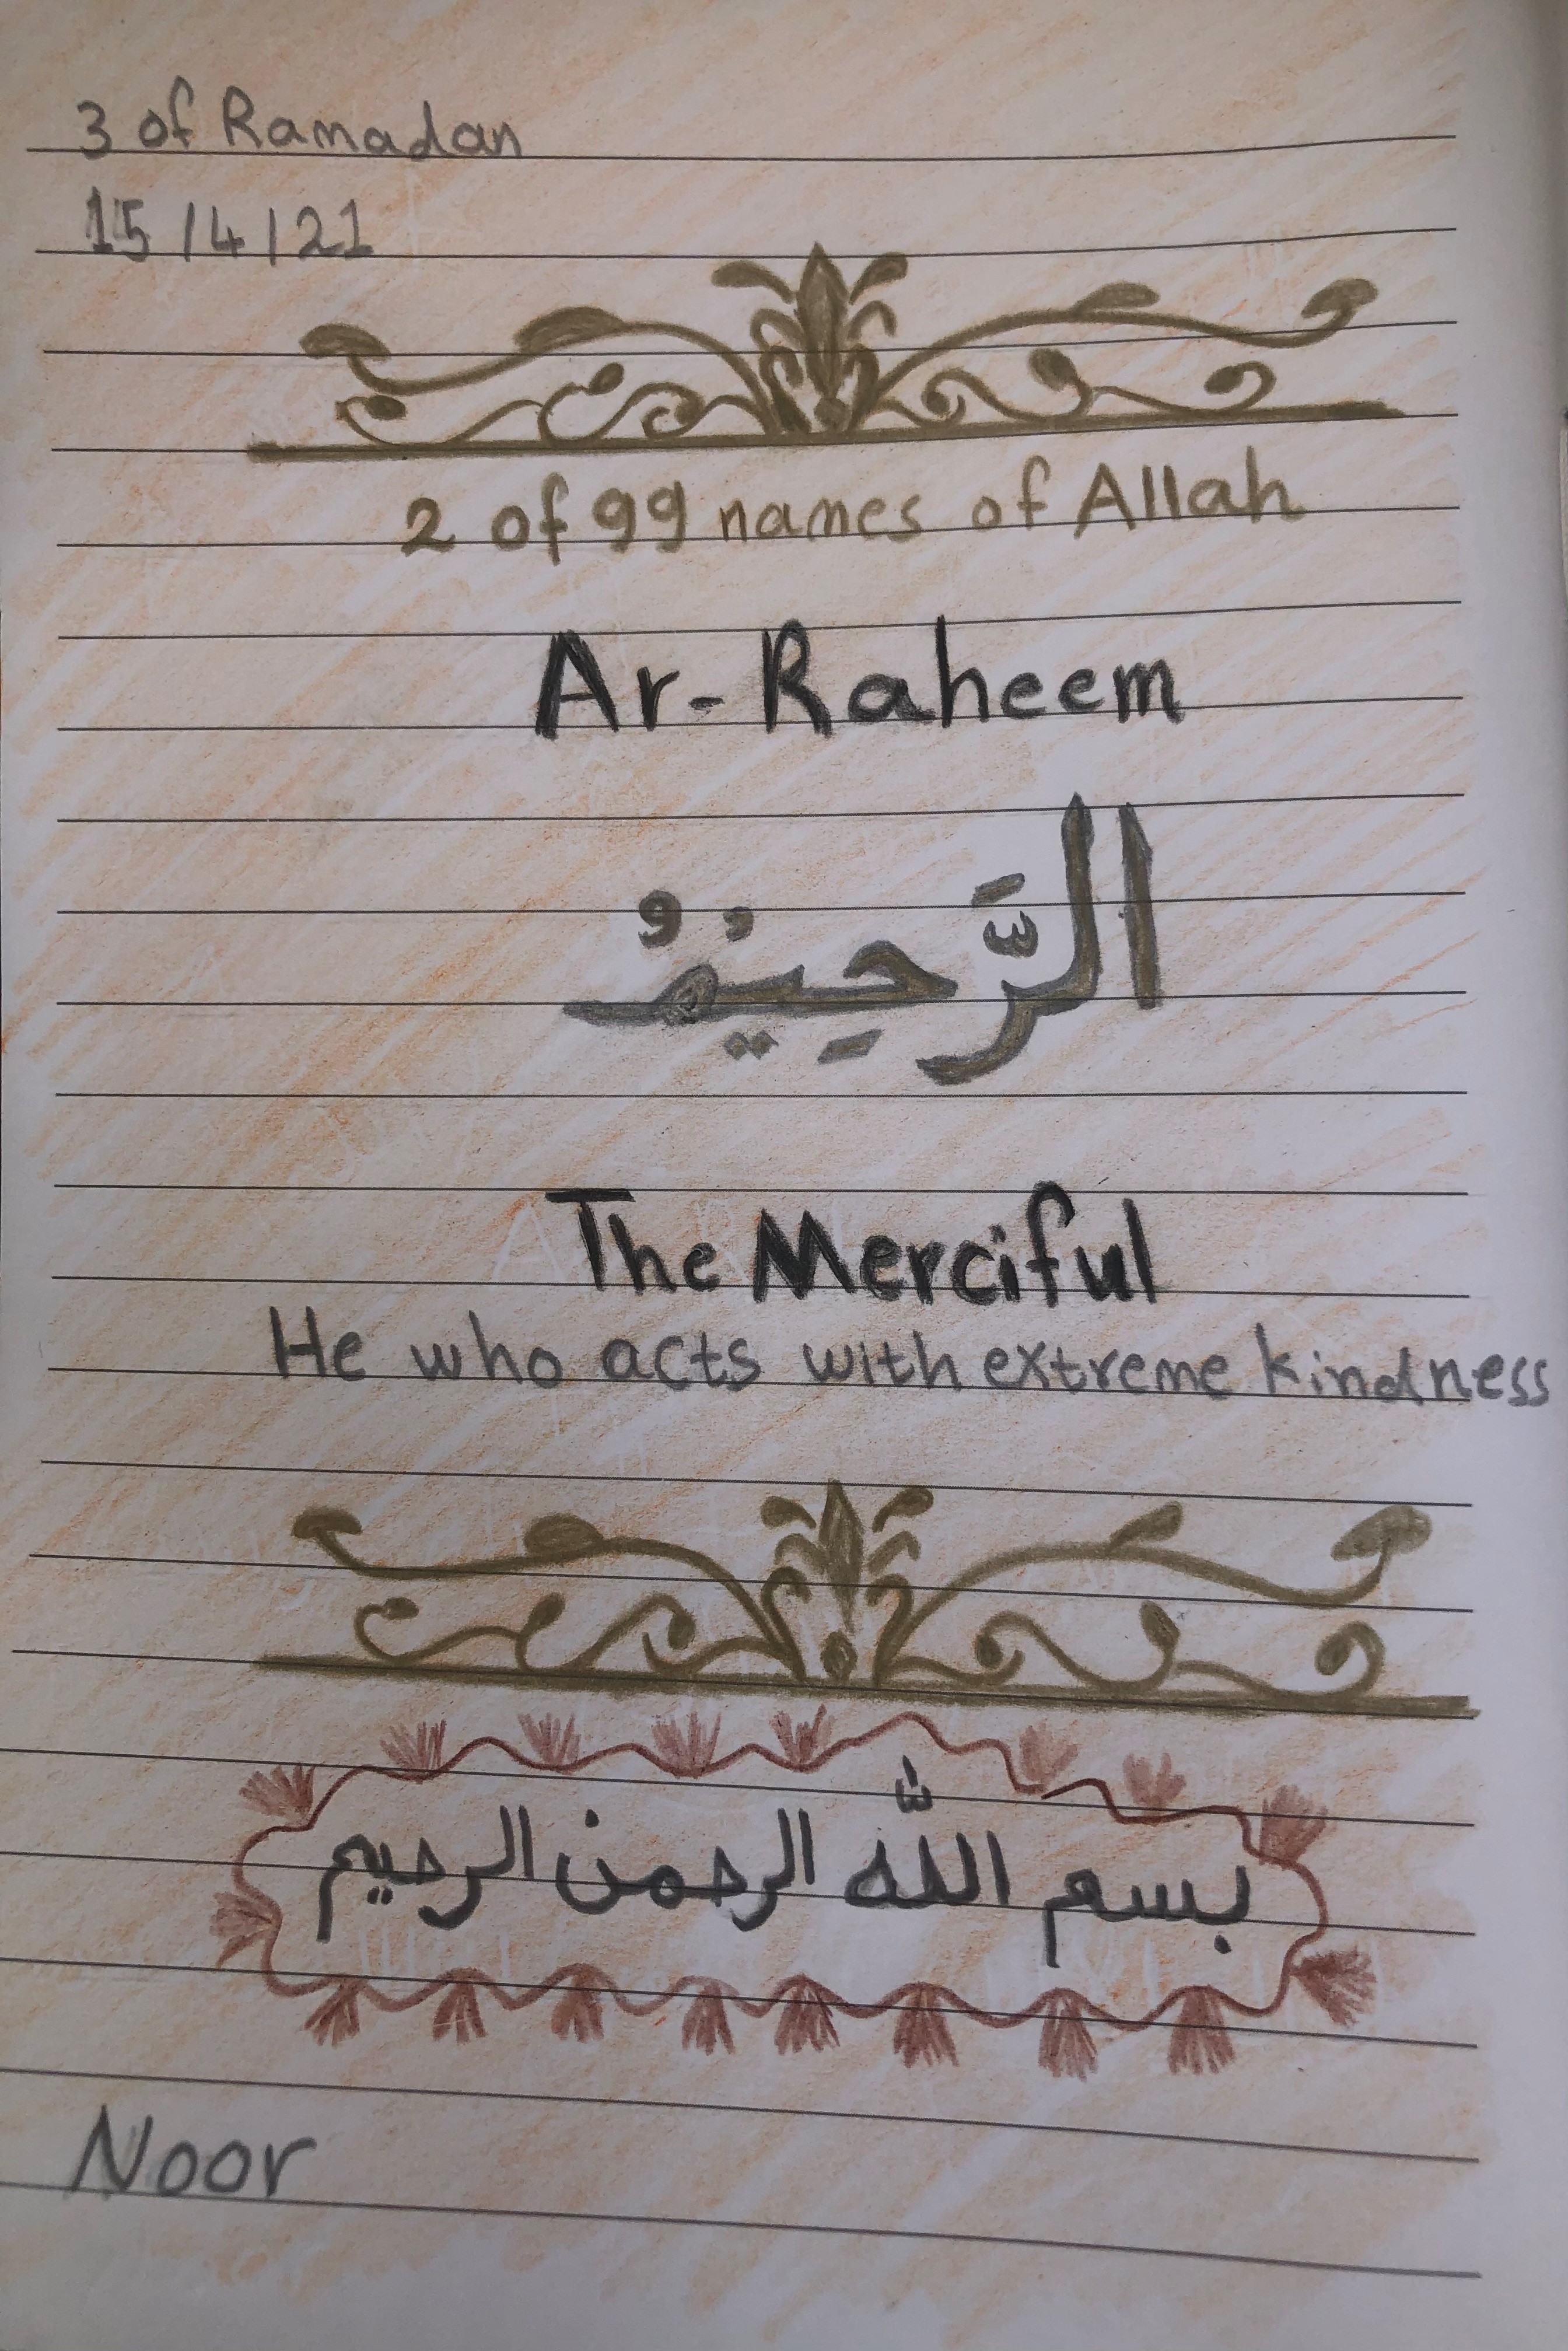 3 of Ramadan
15/4/21
2 of 99 names of Allah
Ar-Raheem
الرَّحِيْمُ
The Merciful
He who acts with extreme kindness
بسم اللّٰه الرحمن الرحيم
Noor